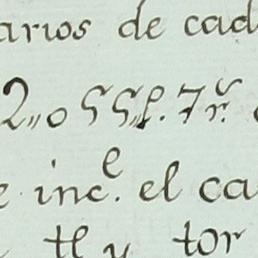 arios de cad
2,,0 55,,p. 7 r.
e inc.e el ca
tl y tor